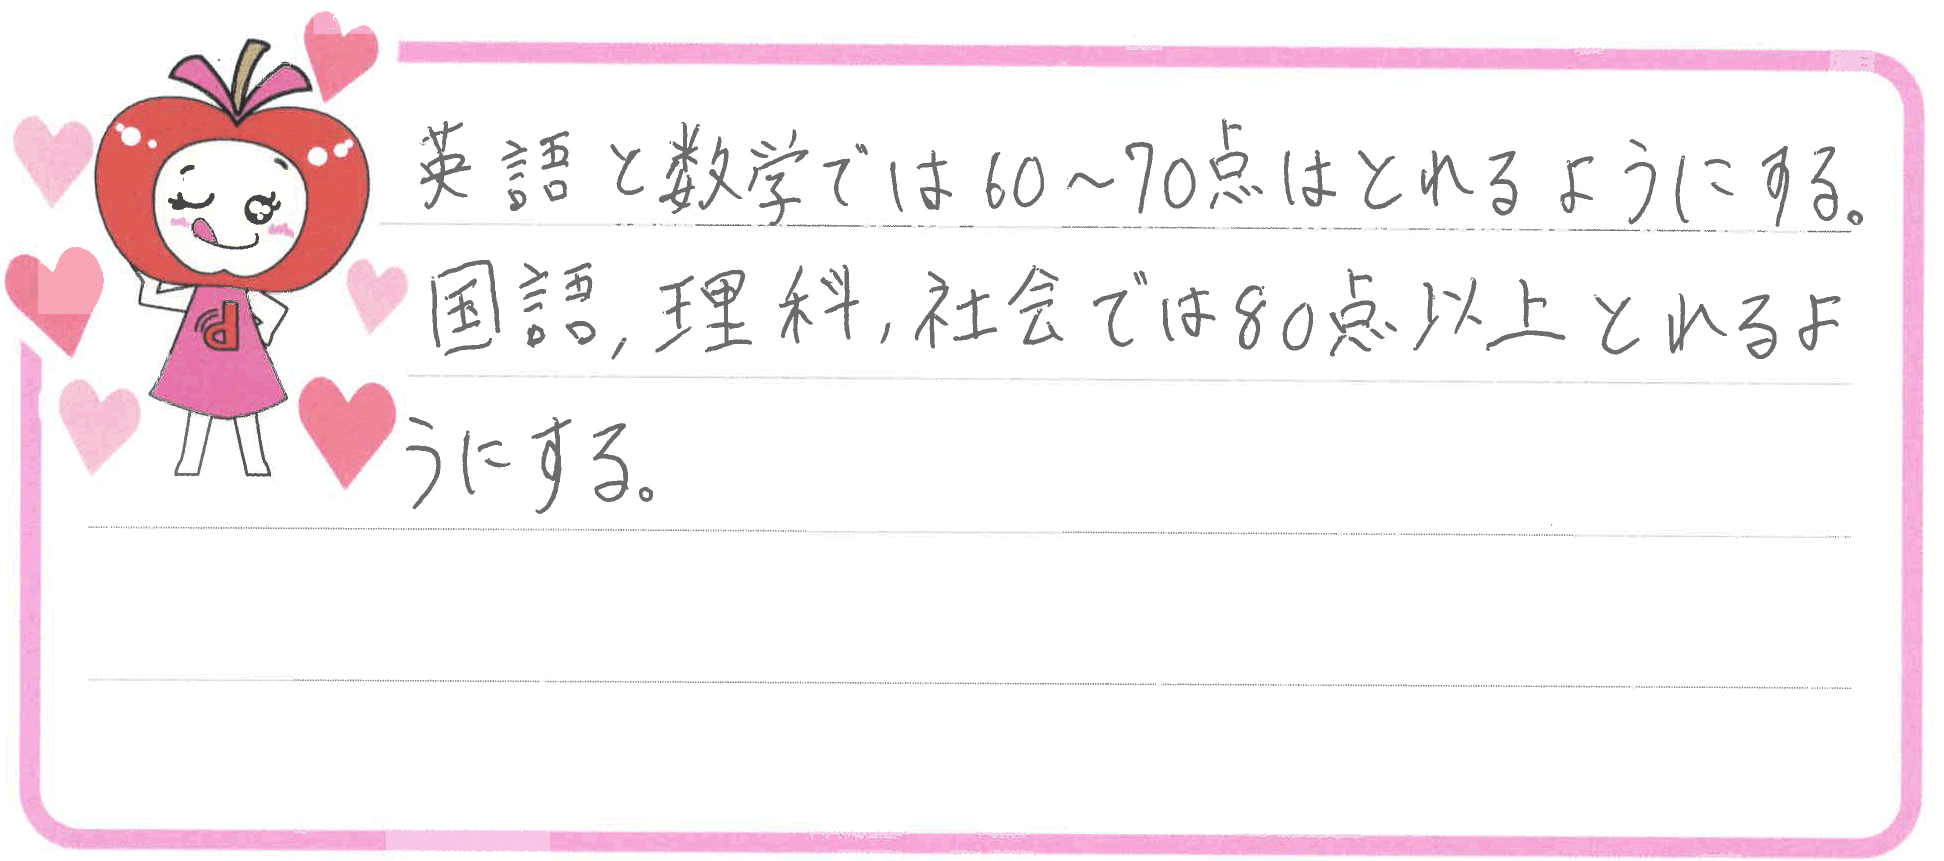 英語と数学では60～70点はとれるようにする。
国語,理科,社会では80点以上とれるよ
うにする。